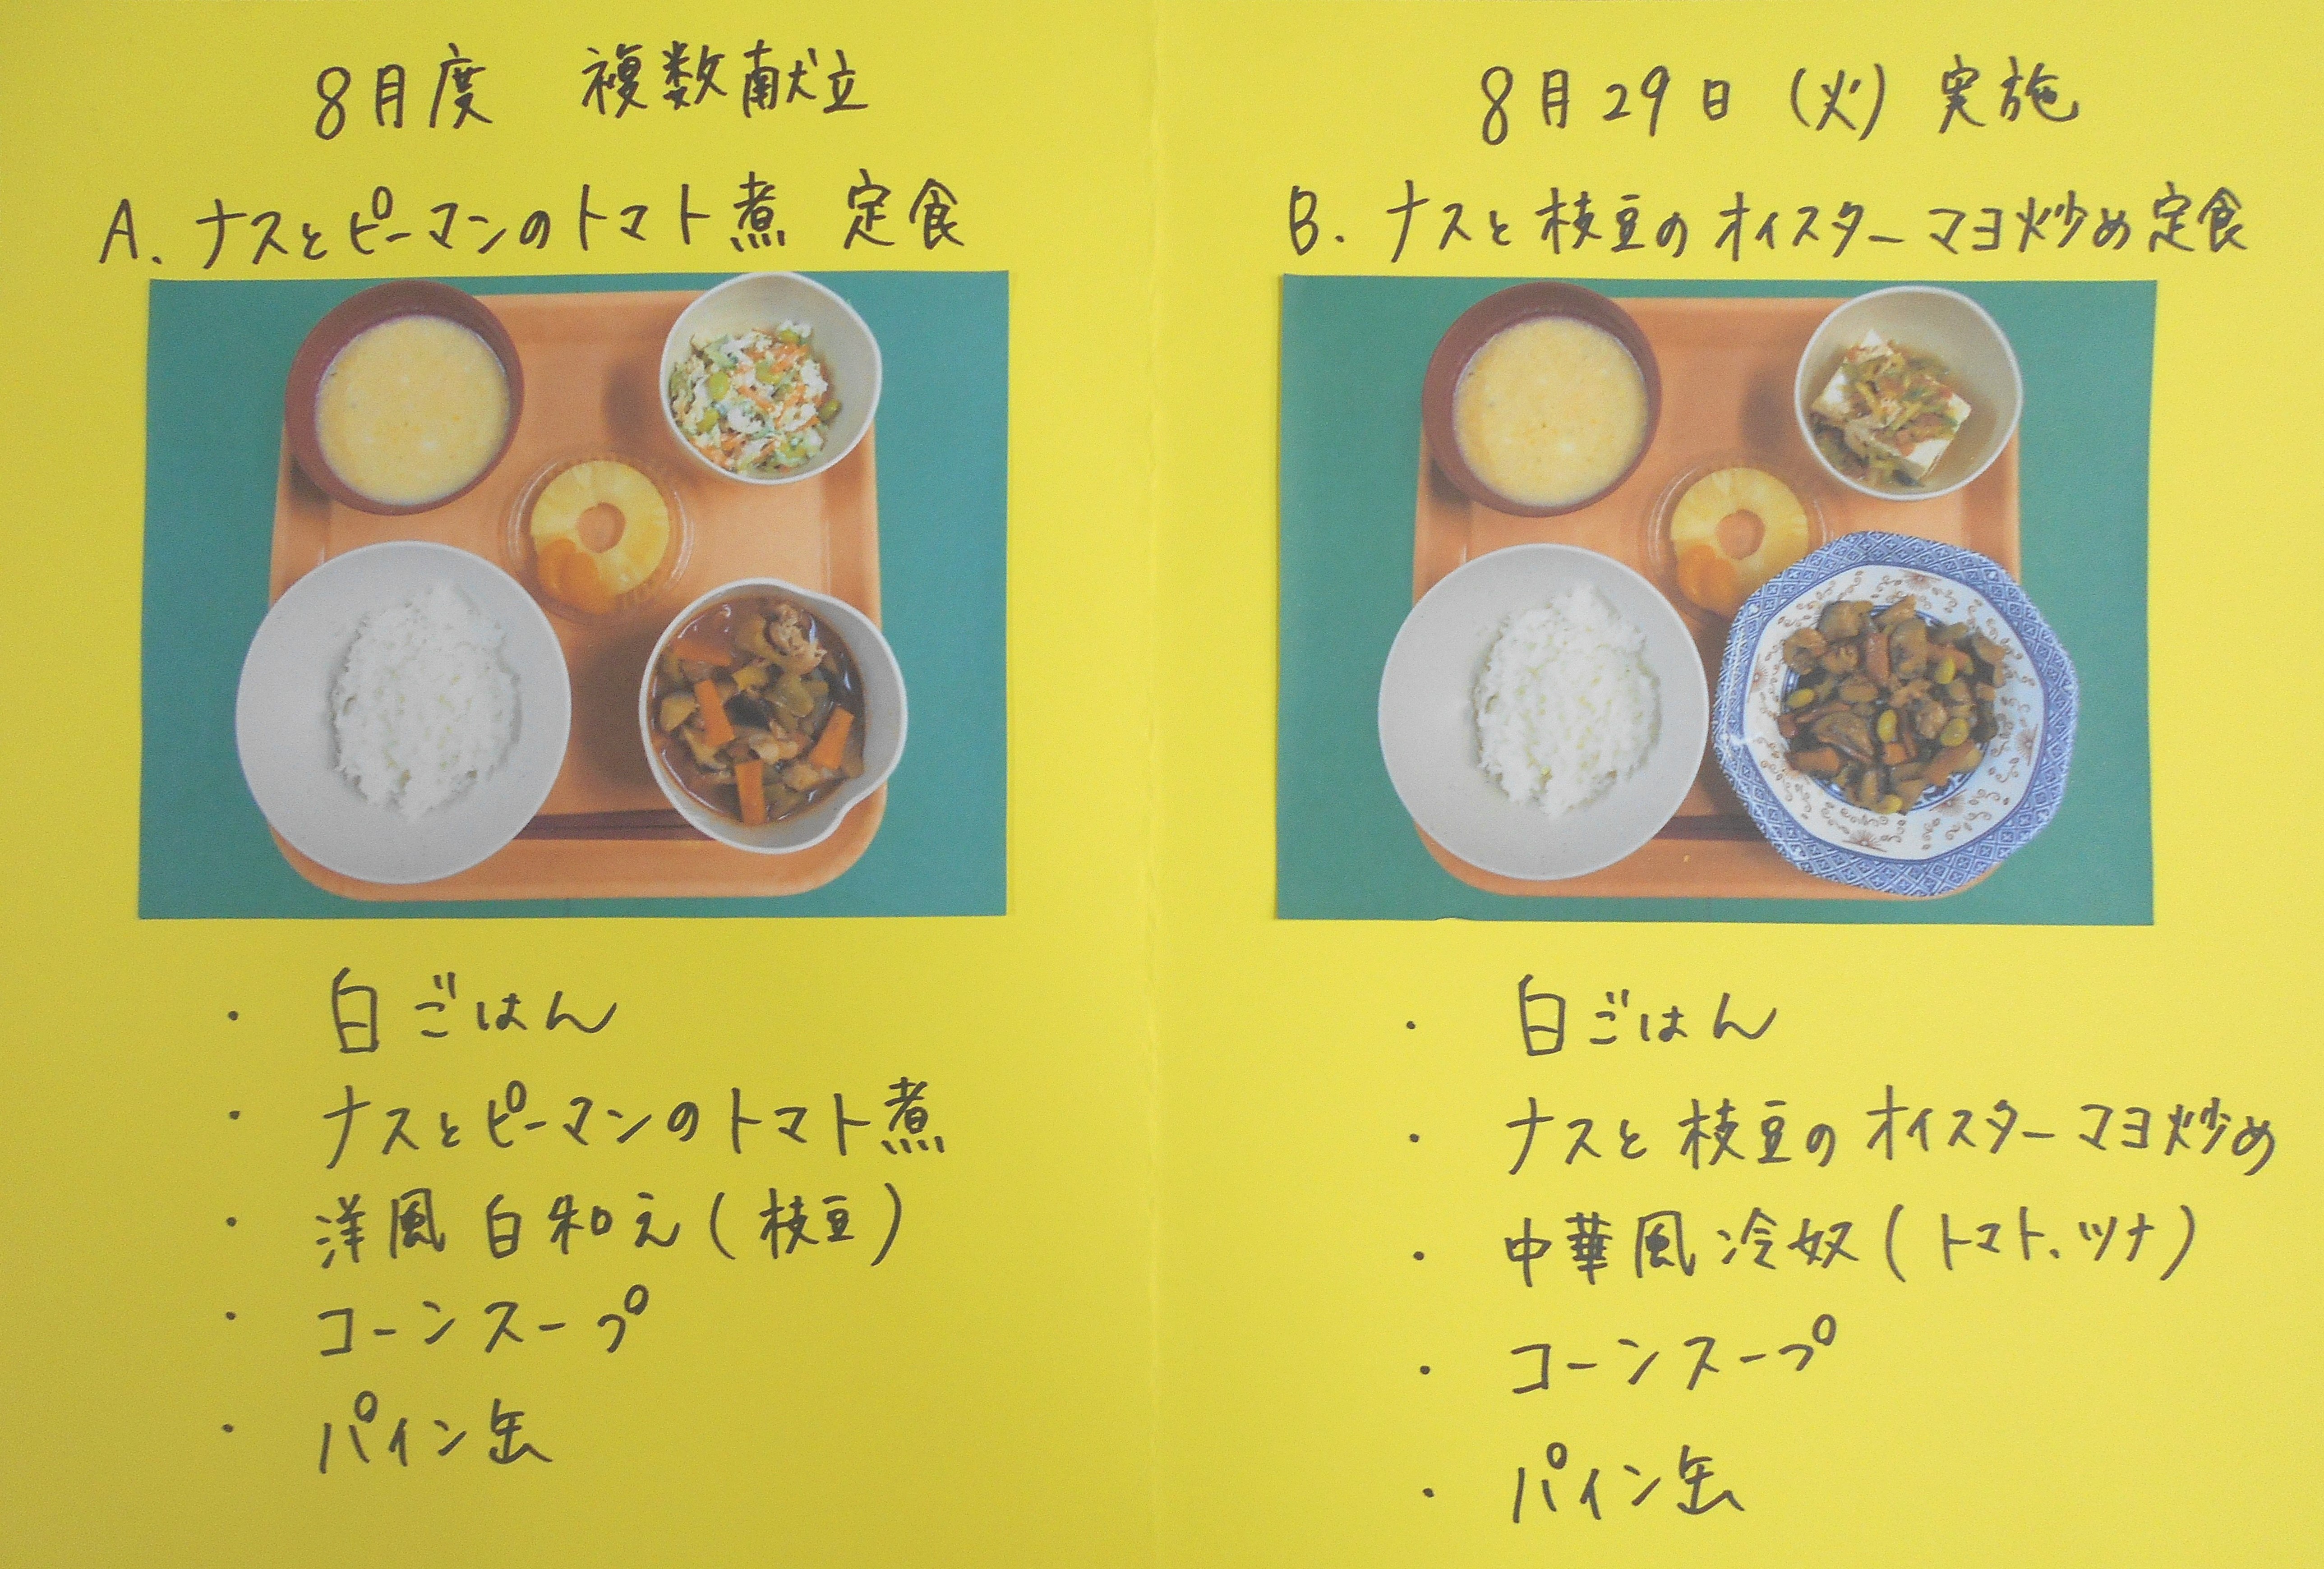 8月度 複数献立
A. ナスとピーマンのトマト煮 定食
・ 白ごはん
・ ナスとピーマンのトマト煮
・ 洋風 白和え(枝豆)
・ コーンスープ
・ パイン缶
8月29日(火) 実施
B. ナスと枝豆のオイスターマヨ炒め定食
・ 白ごはん
・ ナスと枝豆のオイスターマヨ炒め
・ 中華風冷奴(トマト、ツナ)
・ コーンスープ
・ パイン缶